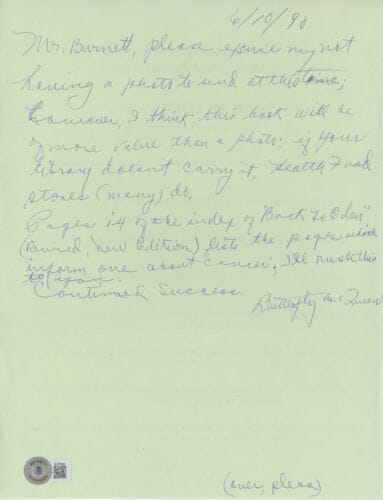 6/10/90
Mr. Burnett, please excuse my not
having a photo to send at this time;
however, I think this book will be
of more value than a photo; if your
library doesn't carry it, Health Food
stores (many) do.
Pages i4 of the index of "Back To Eden"
(Revised, New Edition) lists the pages which
inform one about "Cancer". I'll rush this
to you.
Continued Success.
Butterfly McQueen
(over, please)
BECKETT